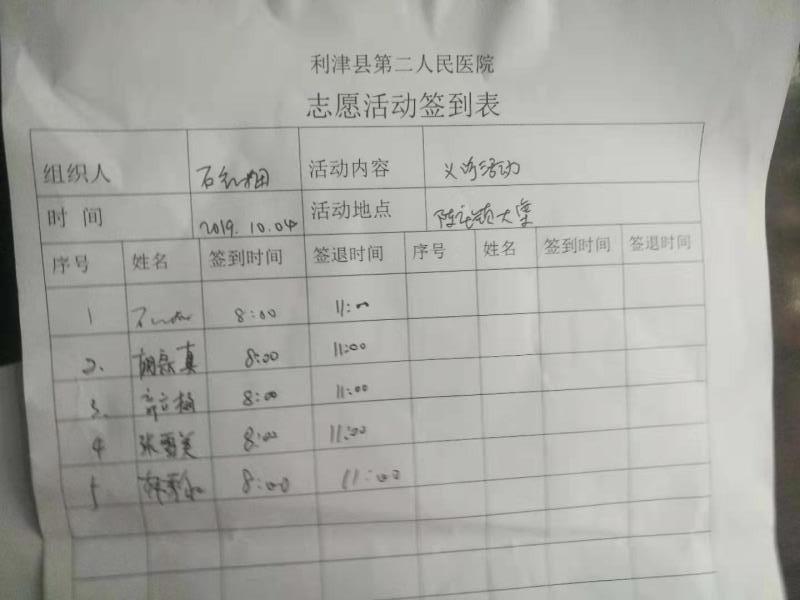 利津县第二人民医院
志愿活动签到表
组织人 石 活动内容 义诊活动
时 间 2019.10.04 活动地点 陈庄镇大集
序号 姓名 签到时间 签退时间 序号 姓名 签到时间 签退时间
1 8:00 11:00
2. 胡 真 8:00 11:00
3. 8:00 11:00
4 张雪美 8:00 11:00
5 8:00 11:00